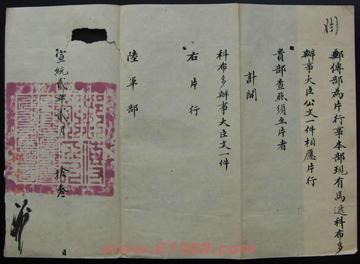 郵傳部為片行事本部現有馬遞科布多
辦事大臣公文一件相應片行
貴部查照須至片者
計開
科布多辦事大臣文一件
右片行
陸軍部
宣統貳年貳月
拾叁
日